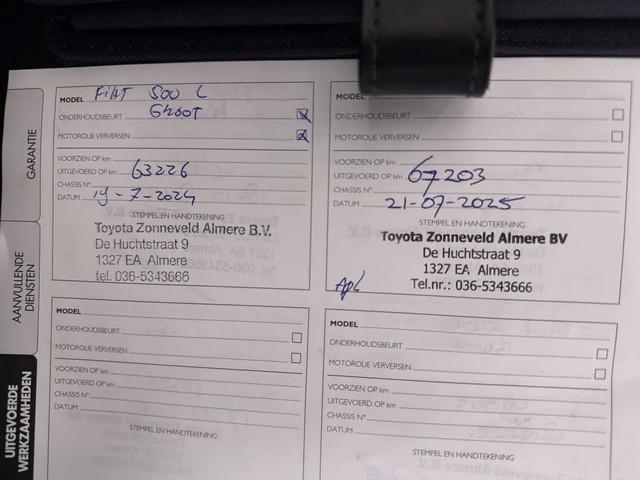 GARANTIE
AANVULLENDE
DIENSTEN
UITGEVOERDE
WERKZAAMHEDEN
MODEL FiAT 500 L
ONDERHOUDSBEURT Groot
MOTOROLIE VERVERSEN
VOORZIEN OP km
UITGEVOERD OP km 63226
CHASSIS N°
DATUM 19-7-2024
STEMPEL EN HANDTEKENING
Toyota Zonneveld Almere B.V.
De Huchtstraat 9
1327 EA Almere
tel. 036-5343666
MODEL
ONDERHOUDSBEURT
MOTOROLIE VERVERSEN
VOORZIEN OP km
UITGEVOERD OP km 67203
CHASSIS N°
DATUM 21-07-2025
STEMPEL EN HANDTEKENING
Toyota Zonneveld Almere BV
De Huchtstraat 9
1327 EA Almere
Tel.nr.: 036-5343666
MODEL
ONDERHOUDSBEURT
MOTOROLIE VERVERSEN
VOORZIEN OP km
UITGEVOERD OP km
CHASSIS N°
DATUM
STEMPEL EN HANDTEKENING
MODEL
ONDERHOUDSBEURT
MOTOROLIE VERVERSEN
VOORZIEN OP km
UITGEVOERD OP km
CHASSIS N°
DATUM
STEMPEL EN HANDTEKENING